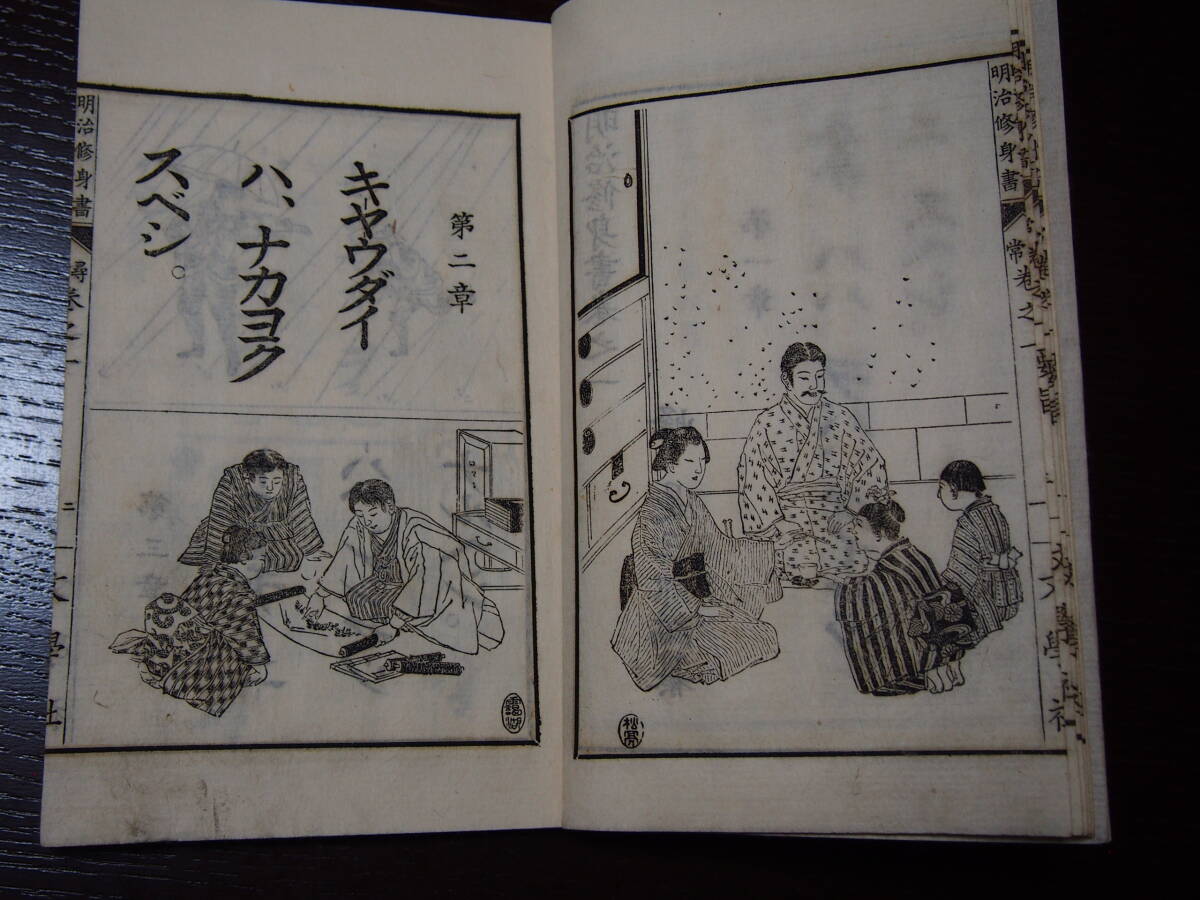 明治修身書
常卷之一
文學社
松亮
第二章
キヤウダイ
ハ、ナカヨク
スベシ。
明治修身書
尋
卷之一
二
文學社